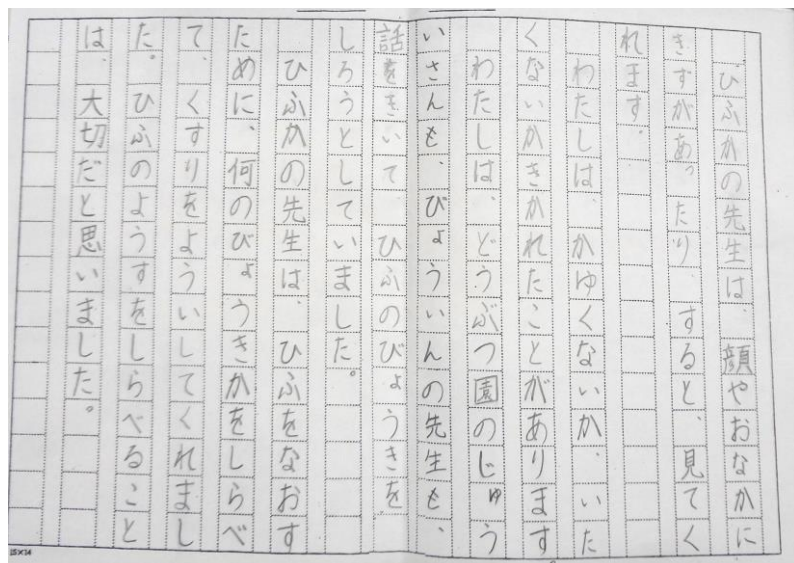 ひふかの先生は、顔やおなかに
きずがあったり、すると、見てく
れます。
わたしは、かゆくないか、いた
くないかきかれたことがあります
わたしは、どうぶつ園のじゅう
いさんも、びょういんの先生も、
話をきいて、ひふのびょうきを
しろうとしていました。
ひふかの先生は、ひふをなおす
ために、何のびょうきかをしらべ
て、くすりをよういしてくれまし
た。ひふのようすをしらべること
は、大切だと思いました。
25×14